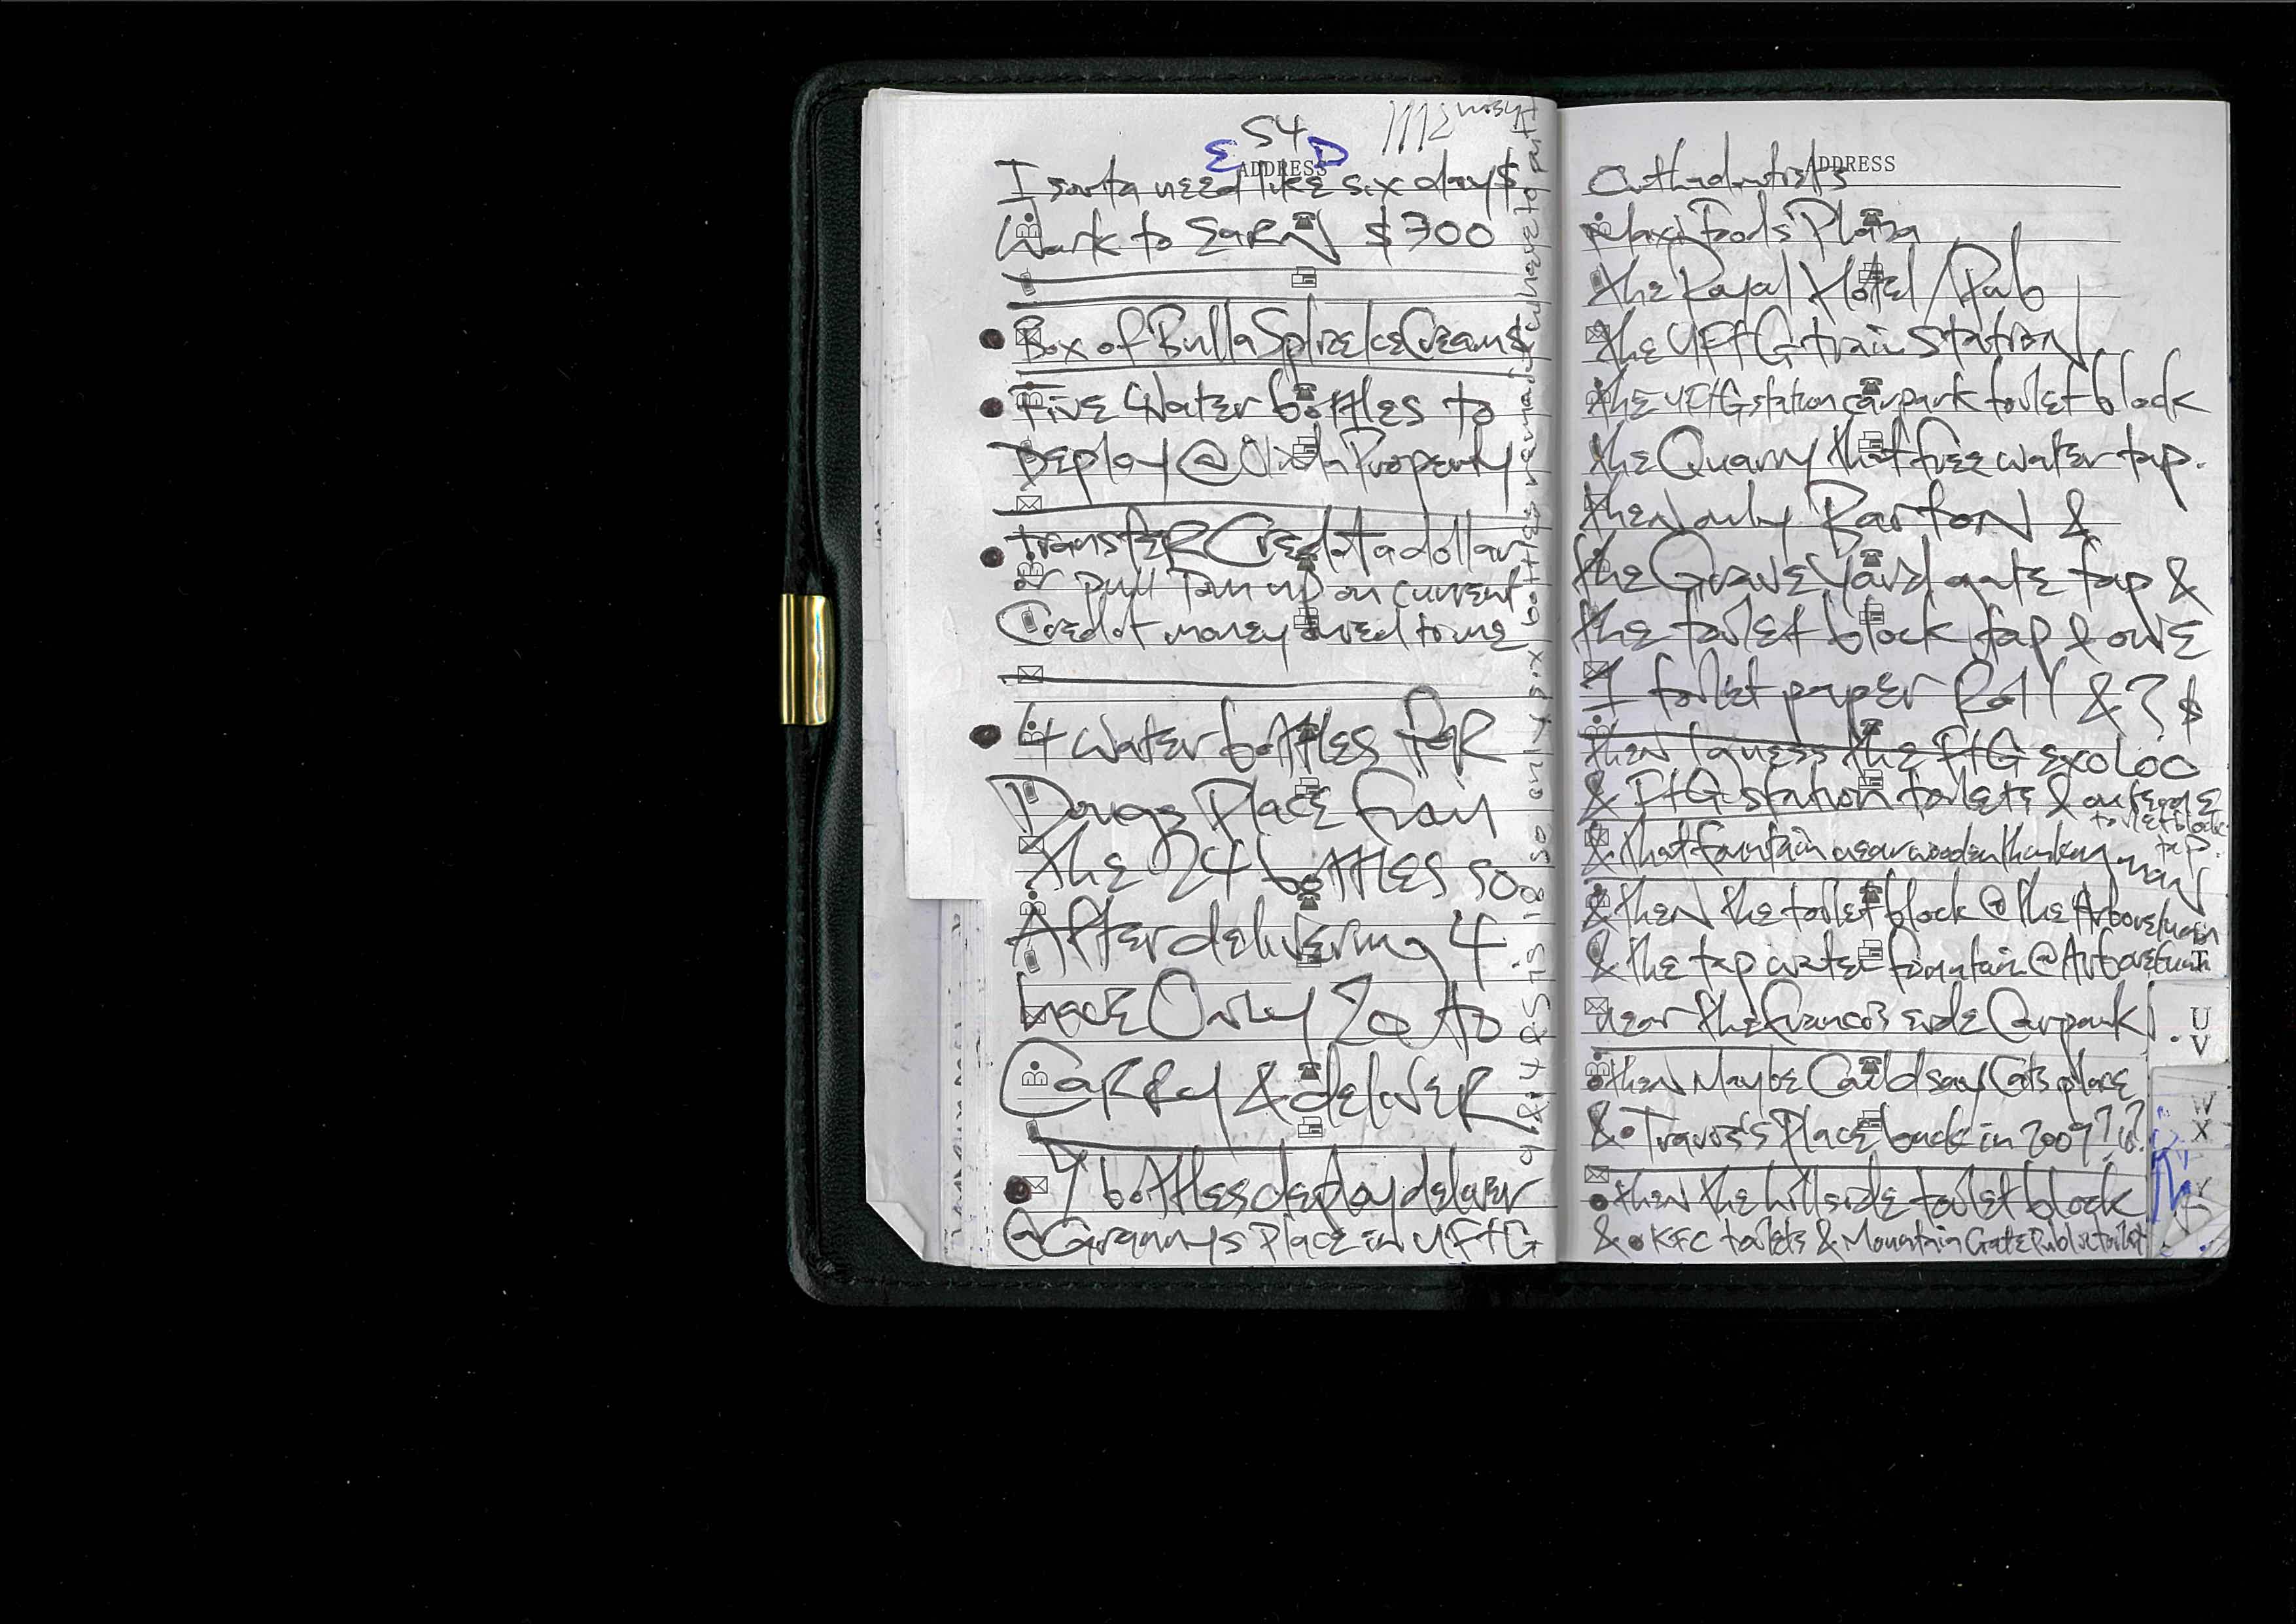 54
E D
ADDRESS
I sorta need like six days
Work to EaRN $300
Box of Bulla Splice Ice Creams
Five Water bottles to
Deploy @ Property
transfeR Credit a dollar
or pull up on current
Credit money owed to me
4 water bottles for
Dougs Place from
the 24 bottles so
After delivering 4
have Only 20 to
CaRRy & delivER
bottles deploy deliver
@ Grannys Place in UFtG
so only six bottles remaded
ADDRESS
Orthodontists
Maxi Foods Plaza
the Royal Hotel/Pub
the UFtG train station
the UFtG station carpark toilet block
the Quarry that free water tap.
then only BartoN &
the GraveYard gate tap &
the toilet block tap & owe
1 toilet paper Roll & ? $
then I guess the FtG exoloo
& FtG station toilets &
toilet block
tap.
& that fountain near wooden thinking man
& theN the toilet block @ the Arboretum
& the tap water fountain @ Arboretum
near the Francis side Carpark
then Maybe Could say Cats place
& Travis's Place back in 2009??
theN the hillside toilet block
& KFC toilets & Mountain Gate Public toilet
T
U
V
W
X
Y